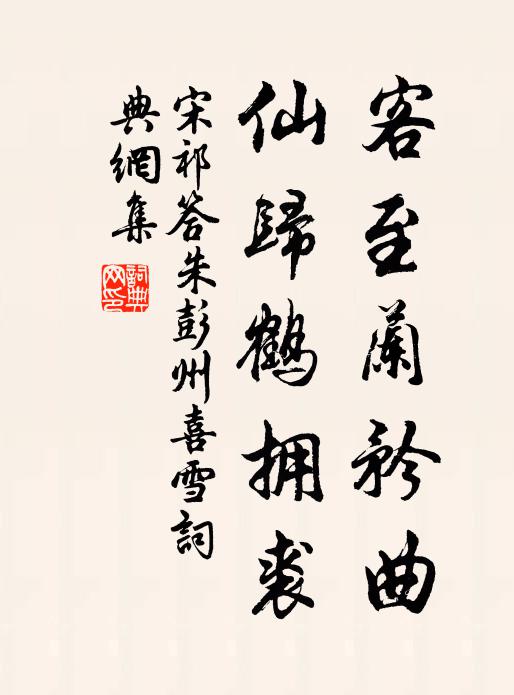 客至蘭矜曲
仙歸鶴拥裘
宋祁答朱彭州喜雪詞
典網集
詞典网印